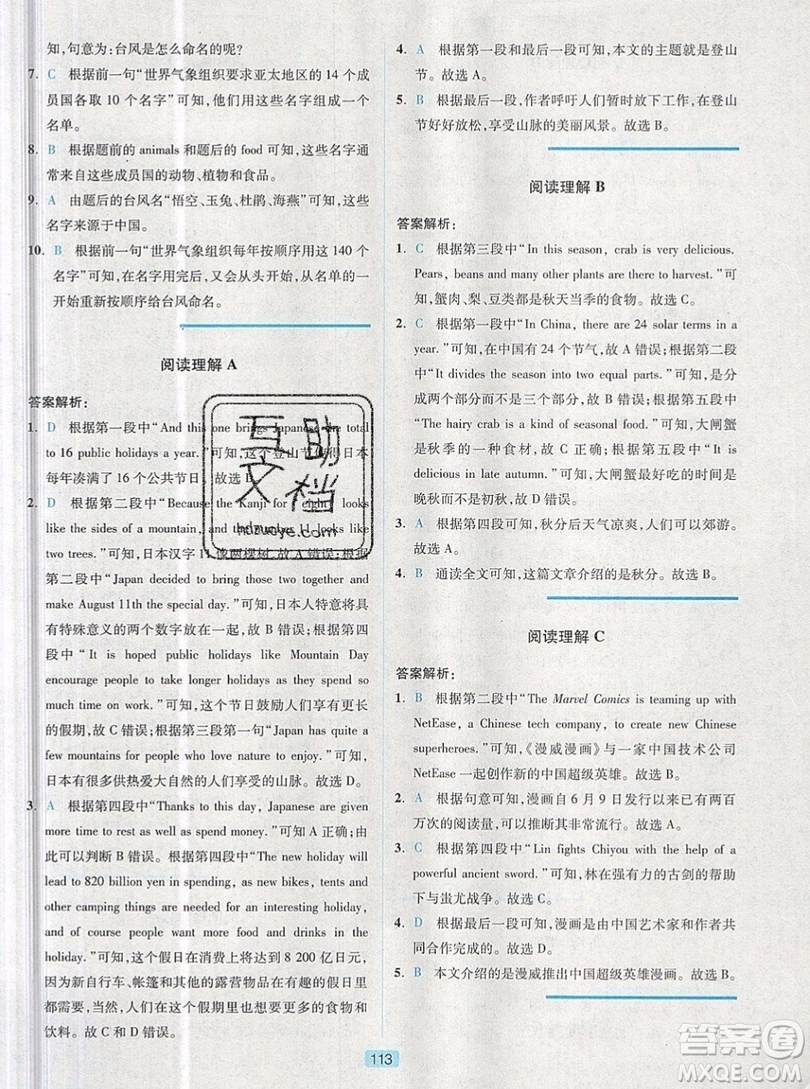 知，句意为：台风是怎么命名的呢?
7. C 根据前一句“世界气象组织要求亚太地区的 14 个成
员国各取 10 个名字”可知，他们用这些名字组成一个
名单。
8. B 根据题前的 animals 和题后的 food 可知，这些名字
来自这些成员国的动物、植物和食品。
9. A 由题后的台风名“悟空、玉兔、杜鹃、海燕”可知，这些
名字来源于中国。
10. B 根据前一句“世界气象组织每年按顺序用这 140 个
名字”可知，在名字用完后，又会从头开始，从名单的一
开始重新按顺序给台风命名。
阅读理解 A
答案解析：
1. D 根据第一段中“And this one brings Japanese the total
to 16 public holidays a year.”可知，这个登山节使得日本
每年凑满了 16 个公共节日。故选 D。
2. D 根据第二段中“Because the Kanji for ‘eight’ looks
like the sides of a mountain, and the number 11 looks like
two trees.”可知，日本汉字 11 像两棵树，故 A 错误；根据
第二段中“Japan decided to bring those two together and
make August 11th the special day.”可知，日本人特意将具
有特殊意义的两个数字放在一起，故 B 错误；根据第四
段中“It is hoped public holidays like Mountain Day
encourage people to take days off as they spend so
much time working.”可知，这个节日鼓励人们享受更长
的假期，故 C 错误；根据第三段第一句“Japan has quite a
few mountains for people who love nature to enjoy.”可知，
日本有很多供热爱大自然的人们享受的山脉。故选 D。
3. A 根据第四段中“Thanks to this day, Japanese are given
more time to rest as well as spend money.”可知 A 正确；由
此可以判断 B 错误。根据第四段中“The new holiday will
lead to 820 billion yen in spending, as new bikes, tents and
other camping things are needed for an interesting holiday,
and of course people want more food and drinks in the
holiday.”可知，这个假日在消费上将达到 8 200 亿日元，因
为新自行车、帐篷和其他的露营物品在有趣的假期里
都需要，当然，人们在这个假期里想要更多的食物和
饮料。故 C 和 D 错误。故选 A。
4. A 根据第一段和最后一段可知，本文的主题就是登山
节。故选 A。
5. B 根据最后一段，作者呼吁人们暂时放下工作，在登山
节好好放松，享受山脉的美丽风景。故选 B。
阅读理解 B
答案解析：
1. C 根据第三段中“In this season, crab is very delicious.
Pears, beans and many other plants are there to harvest.”可
知，蟹肉、梨、豆类都是秋天当季的食物。故选 C。
2. C 根据第一段中“In China, there are 24 solar terms in a
year.”可知，在中国有 24 个节气，故 A 错误；根据第二段
中“It divides the season into two equal parts.”可知，是分
成两个部分而不是三个部分，故 B 错误；根据第五段中
“The hairy crab is a kind of seasonal food.”可知，大闸蟹
是秋季的一种食材，故 C 正确；根据第五段中“It is
delicious in late autumn.”可知，大闸蟹最好吃的时间是
晚秋而不是初秋，故 D 错误。故选 C。
3. A 根据第四段可知，秋分后天气凉爽，人们可以郊游。
故选 A。
4. B 通读全文可知，这篇文章介绍的是秋分。故选 B。
阅读理解 C
答案解析：
1. B 根据第二段中“The Marvel Comics is teaming up with
NetEase, a Chinese tech company, to create new Chinese
superheroes.”可知，《漫威漫画》与一家中国技术公司
NetEase 一起创作新的中国超级英雄。故选 B。
2. A 根据句意可知，漫画自 6 月 9 日发行以来已有两百
万次的阅读量，可以推断其非常流行。故选 A。
3. C 根据第四段中“Lin fights Chiyou with the help of a
powerful ancient sword.”可知，林烈在强有力的古剑的帮助
下与蚩尤战争。故选 C。
4. D 根据最后一段可知，漫画是由中国艺术家和作者共
同合作完成的。故选 D。
5. B 本文介绍的是漫威推出中国超级英雄漫画。故选 B。
113
互助
文档
hdzuoye.com
答案圈
MXQE.COM